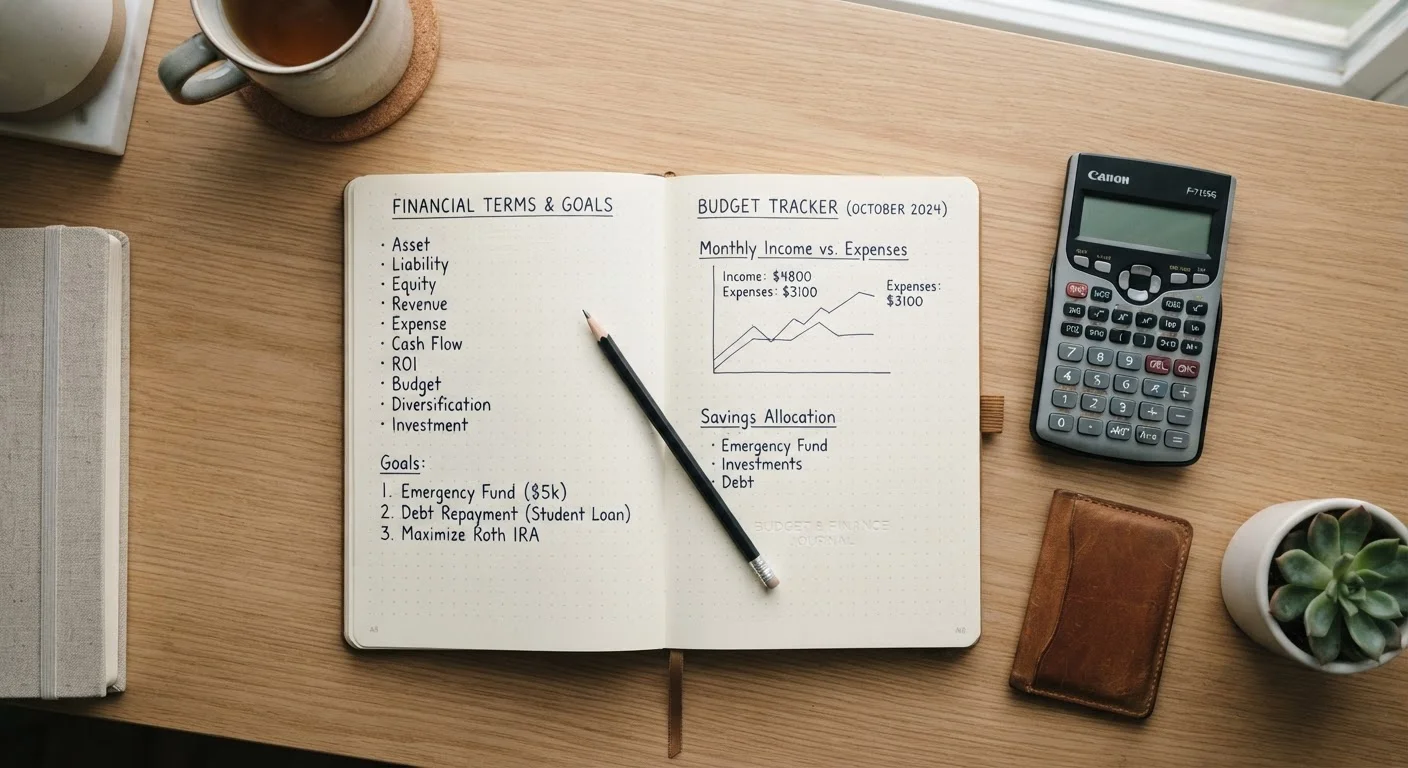 FINANCIAL TERMS & GOALS
· Asset
· Liability
· Equity
· Revenue
· Expense
· Cash Flow
· ROI
· Budget
· Diversification
· Investment
Goals:
1. Emergency Fund ($5k)
2. Debt Repayment (Student Loan)
3. Maximize Roth IRA
BUDGET TRACKER (OCTOBER 2024)
Monthly Income vs. Expenses
Income: $4800
Expenses: $3100
Expenses:
$3100
Savings Allocation
· Emergency Fund
· Investments
· Debt
BUDGET & FINANCE
JOURNAL
Canon
7 8 9
4 5 6
1 2 3 + −
0 =